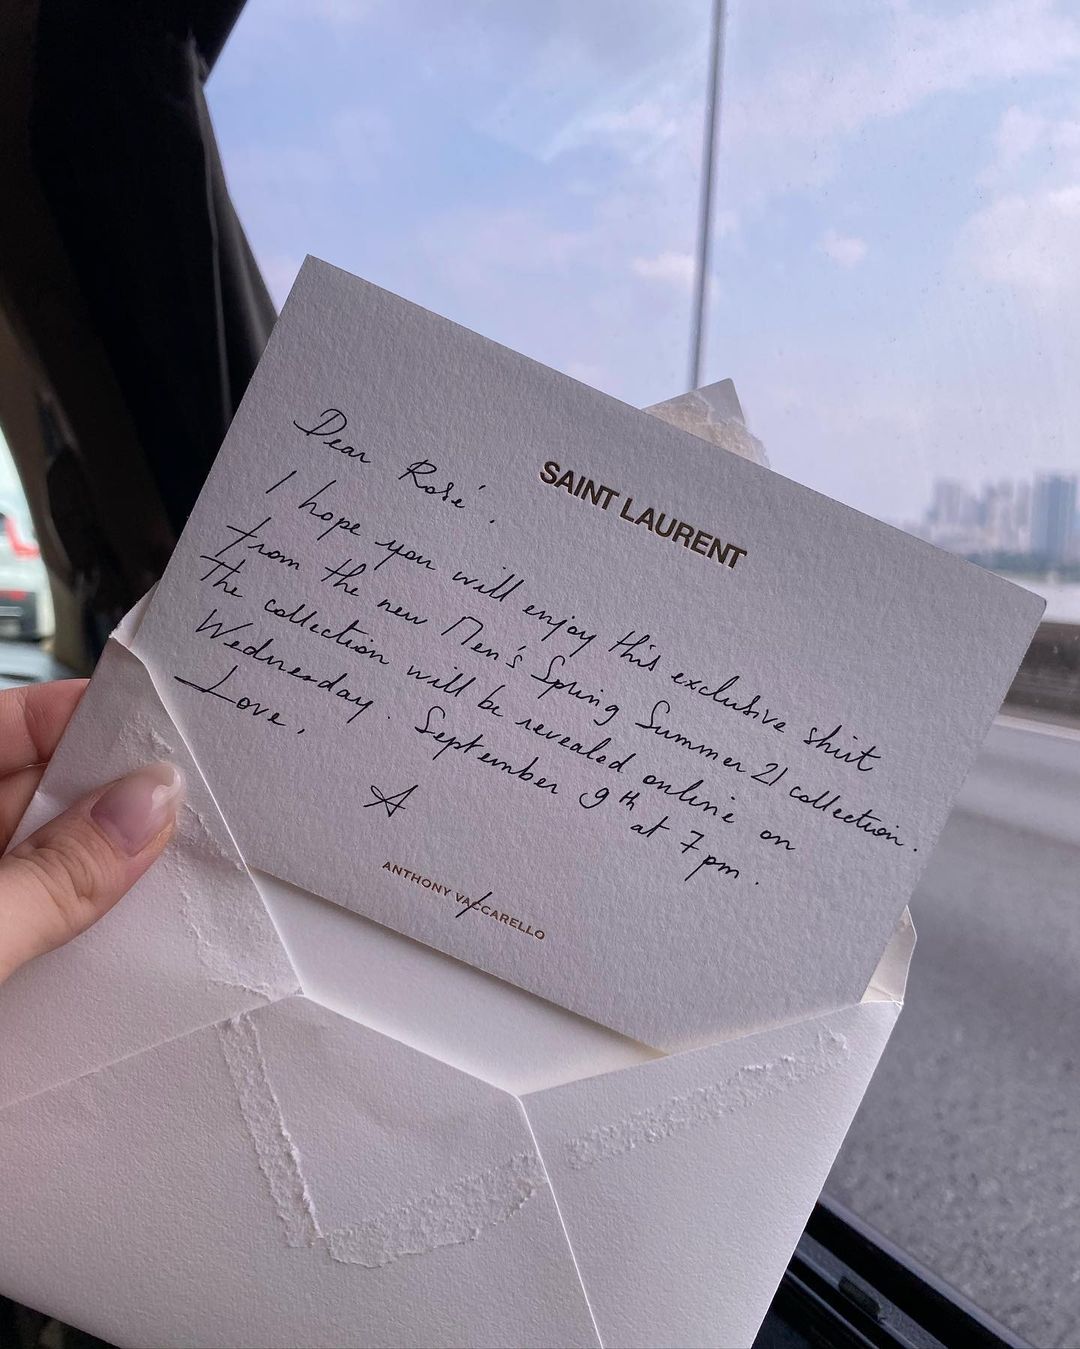 SAINT LAURENT
Dear Rosé.
I hope you will enjoy this exclusive shirt
from the new Men's Spring Summer 21 collection.
The collection will be revealed online on
Wednesday. September 9th at 7pm.
Love,
A
ANTHONY VACCARELLO